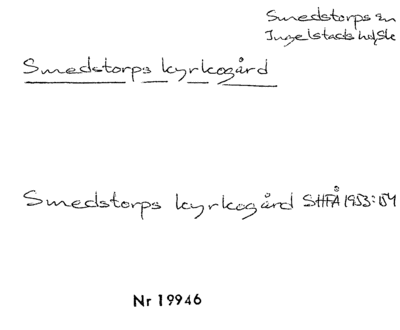 Smedstorps sn
Ingelstads hd, Sk
Smedstorps kyrkogård
Smedstorps kyrkogård SHFÅ 1953:154
Nr 19946